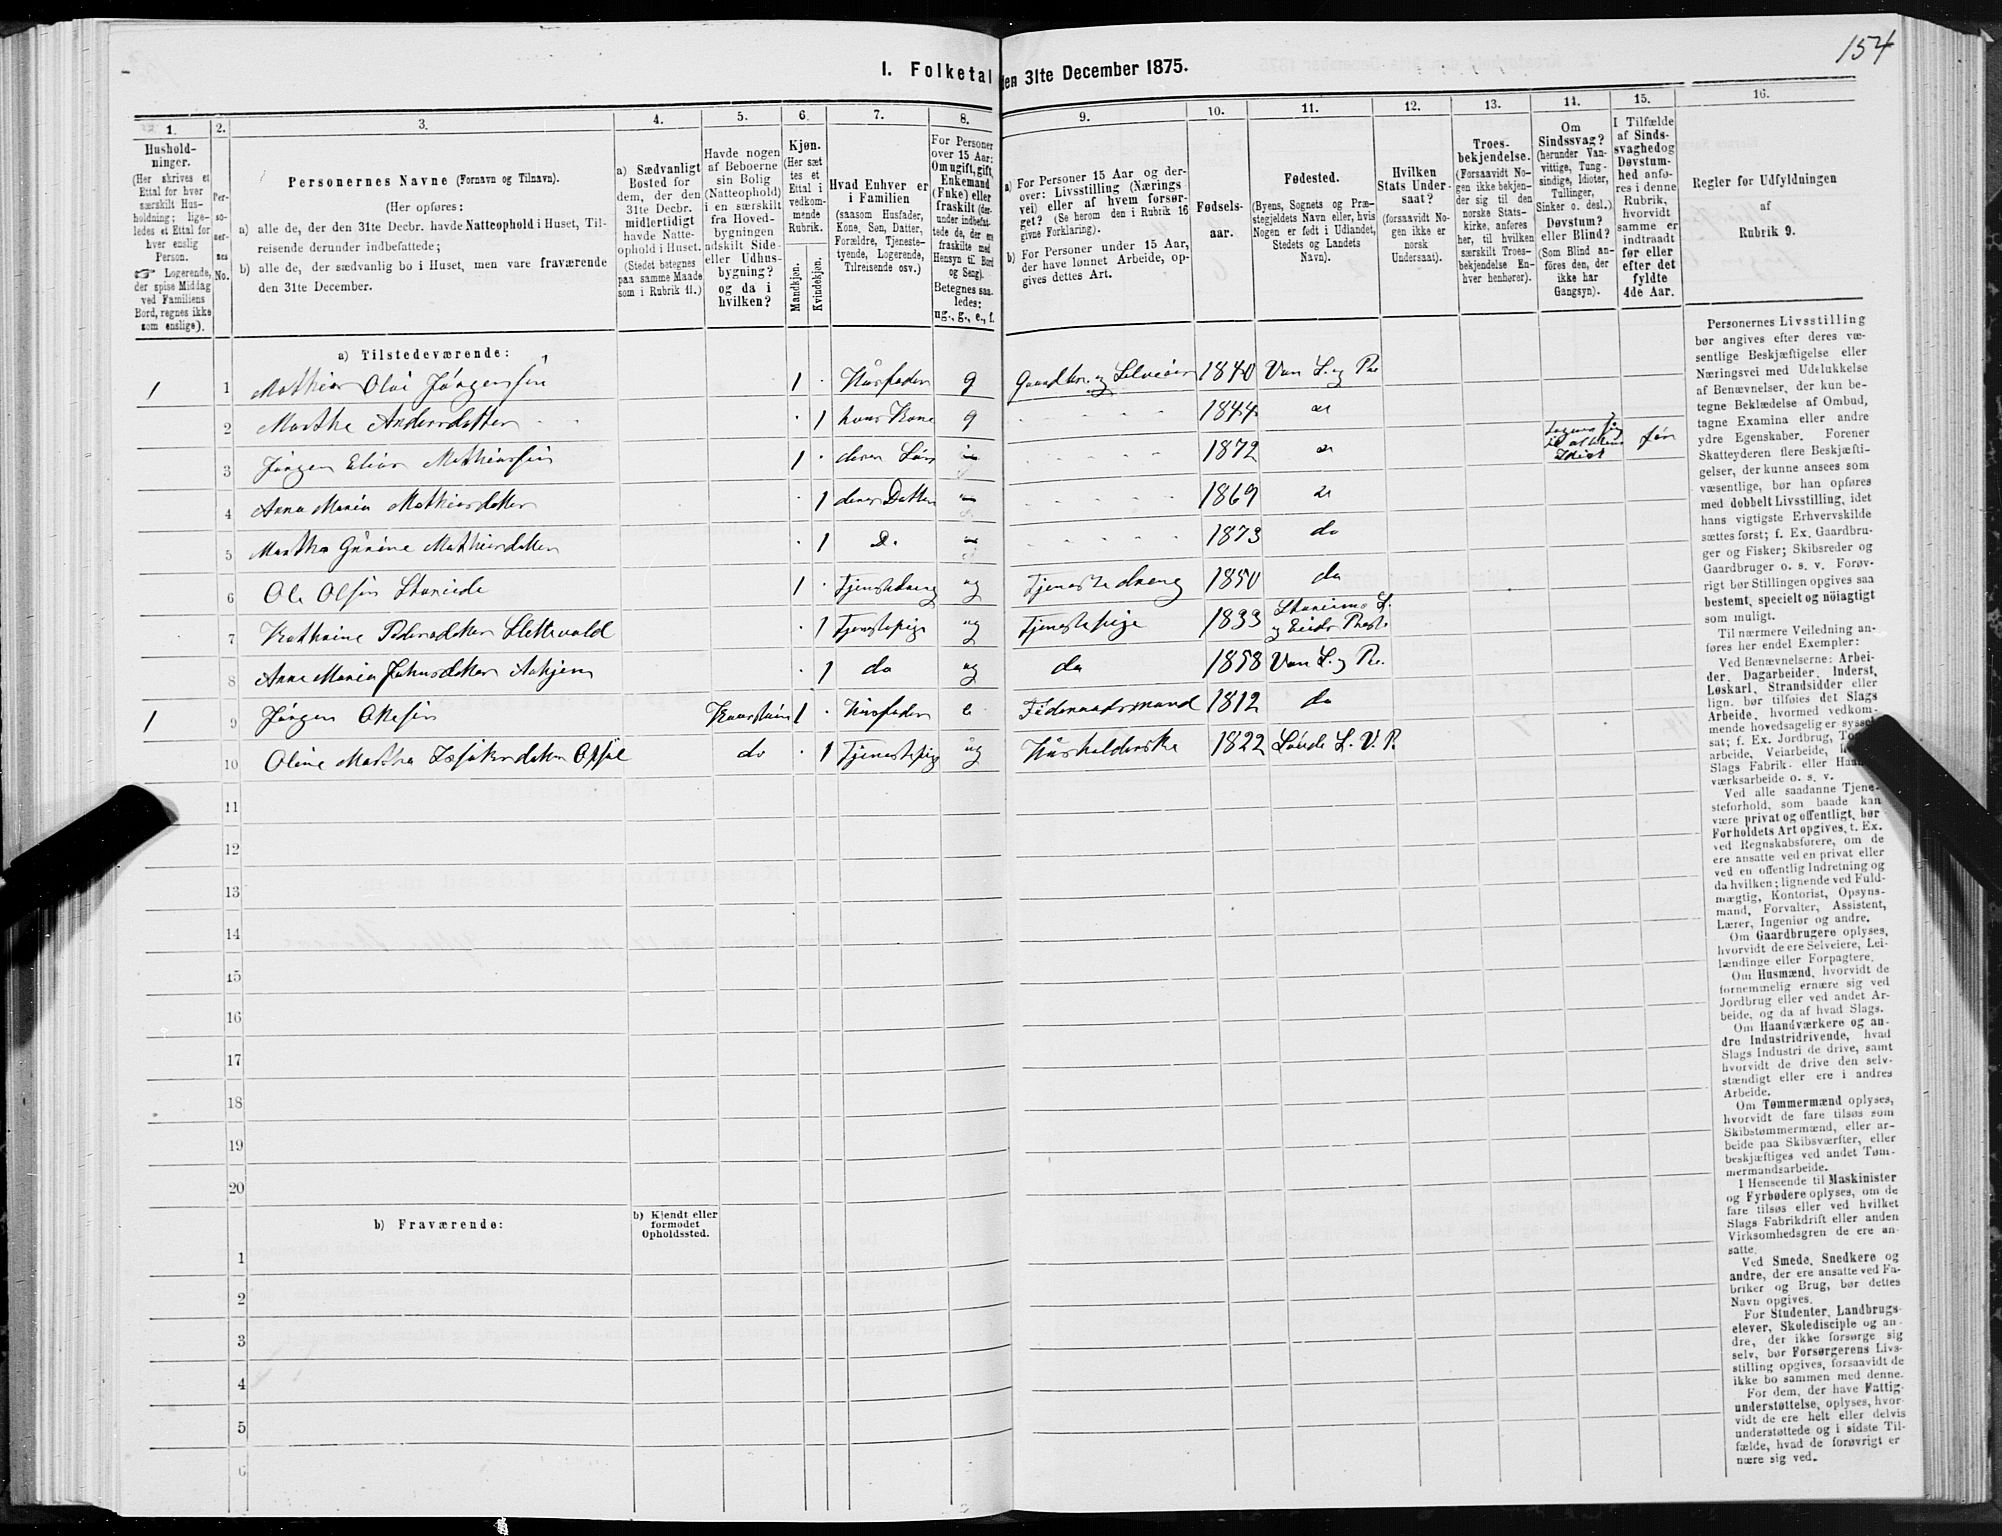 154
I. Folketal den 31te December 1875.
1. 2. 3. 4. 5. 6. 7. 8. 9. 10. 11. 12. 13. 14. 15. 16.
Hushold-
ninger.
(Her skrives et
Ettal for hver
særskilt Hus-
holdning; lige-
ledes et Ettal for
hver enslig
Person.
☞ Logerende,
der spise Middag
ved Familiens
Bord, regnes ikke
som enslige).
Per-
so-
ner-
nes
No.
Personernes Navne (Fornavn og Tilnavn).
(Her opføres:
a) alle de, der den 31te Decbr. havde Natteophold i Huset, Til-
reisende derunder indbefattede;
b) alle de, der sædvanlig bo i Huset, men vare fraværende
den 31te December.
a) Sædvanligt
Bosted for
dem, der den
31te Decbr.
midlertidigt
havde Natte-
ophold i Huset.
(Stedet betegnes
paa samme Maade
som i Rubrik 11.)
Havde nogen
af Beboerne
sin Bolig
(Natteophold)
i en særskilt
fra Hoved-
bygningen
adskilt Side-
eller Udhus-
bygning?
og da i
hvilken?
Kjøn.
(Her sæt-
tes et
Ettal i
vedkom-
mende
Rubrik.
Mandkjøn.
Kvindekjøn.
Hvad Enhver er
i Familien
(saasom Husfader,
Kone, Søn, Datter,
Forældre, Tjeneste-
tyende, Logerende,
Tilreisende osv.)
For Personer
over 15 Aar:
Om ugift, gift,
Enkemand
(Enke) eller
fraskilt (der-
under indbefat-
tede de, der ere
fraskilte med
Hensyn til Bord
og Seng).
Betegnes saa-
ledes:
ug., g., e., f.
a) For Personer 15 Aar og der-
over: Livsstilling (Nærings-
vei) eller af hvem forsør-
get? (Se herom den i Rubrik 16
givne Forklaring).
b) For Personer under 15 Aar,
der have lønnet Arbeide, op-
gives dettes Art.
Fødsels-
aar.
Fødested.
(Byens, Sognets og Præ-
stegjeldets Navn eller, hvis
Nogen er født i Udlandet,
Stedets og Landets
Navn).
Hvilken
Stats Under-
saat?
(forsaavidt No-
gen ikke er
norsk
Undersaat).
Troes-
bekjendelse.
(Forsaavidt No-
gen ikke bekjen-
der sig til den
norske Stats-
kirke, anføres
her, til hvilken
særskilt Troes-
bekjendelse En-
hver henhører).
Om
Sindssvag?
(herunder Van-
vittige, Tung-
sindige, Idioter,
Tullinger,
Sinker o. desl.)
Døvstum?
eller Blind?
(Som Blind an-
føres den, der
ikke har
Gangsyn).
I Tilfælde
af Sinds-
svaghed og
Døvstum-
hed anfø-
res i denne
Rubrik,
hvorvidt
samme er
indtraadt
før eller
efter det
fyldte
4de Aar.
Regler for Udfyldningen
af
Rubrik 9.
a) Tilstedeværende:
1 1 Mathias Olai Jörgensön 1 Husfader g Gaardbr. og Selveier 1840 Van S. og Pr.
2 Marthe Andersdatter 1 hans Kone g 1844
3 Jörgen Elias Mathiassön 1 deres Sön 1872 Idiot för
4 Anna Maria Mathiasdatter 1 deres Datter 1869
5 Martha Gurine Mathiasdatter 1 D. 1873 do
6 Ole Olsön 1 Tjenestedreng ug Tjenestedreng 1850 do
7 Kathrine Pedersdatter Slettevold 1 Tjenestepige ug Tjenestepige 1833
8 Anne Maria Johnsdatter 1 do ug do 1858 Van S. og Pr.
1 9 Jörgen 1 Husfader e Föderaadsmand 1812 do
10 Oline Martha 1 Tjenestepige ug Husholderske 1822 S. V. P.
11
12
13
14
15
16
17
18
19
20
b) Fraværende:
b) Kjendt eller
formodet
Opholdssted.
1
2
3
4
5
6
Personernes Livsstilling
bør angives efter deres væ-
sentlige Beskjæftigelse eller
Næringsvei med Udelukkelse
af Benævnelser, der kun be-
tegne Beklædelse af Ombud,
tagne Examina eller andre
ydre Egenskaber. Forener
Skatteyderen flere Beskjæfti-
gelser, der kunne ansees som
væsentlige, bør han opføres
med dobbelt Livsstilling, idet
hans vigtigste Erhvervskilde
sættes først; f. Ex. Gaardbru-
ger og Fisker; Skibsreder og
Gaardbruger o. s. v. Forøv-
rigt bør Stillingen opgives saa
bestemt, specielt og nöiagtigt
som muligt.
Til nærmere Veiledning an-
føres her endel Exempler:
Ved Benævnelserne: Arbei-
der, Dagarbeider, Inderst,
Løskarl, Strandsidder eller
lign. bør tilføies det Slags
Arbeide, hvormed vedkom-
mende hovedsagelig er syssel-
sat; f. Ex. Jordbrug,
arbeide, Veiarbeide,
Slags Fabrik- eller
værksarbeide o. s. v.
Ved alle saadanne Tjene-
steforhold, som baade kan
være privat og offentligt, bør
Forholdets Art opgives, t. Ex.
ved Regnskabsførere, om de
ere ansatte ved en privat eller
ved en offentlig Indretning og
da hvilken; lignende ved Fuld-
mægtig, Kontorist, Opsyns-
mand, Forvalter, Assistent,
Lærer, Ingeniør og andre.
Om Gaardbrugere oplyses,
hvorvidt de ere Selveiere, Lei-
lændinge eller Forpagtere.
Om Husmænd, hvorvidt de
fornemmelig ernære sig ved
Jordbrug eller ved andet Ar-
beide, og da af hvad Slags.
Om Haandværkere og an-
dre Industridrivende, hvad
Slags Industri de drive, samt
hvorvidt de drive den selv-
stændigt eller ere i andres
Arbeide.
Om Tømmermænd oplyses,
hvorvidt de fare tilsøs som
Skibstømmermænd, eller ar-
beide paa Skibsværfter, eller
beskjæftiges ved andet Tøm-
mermandsarbeide.
I Henseende til Maskinister
og Fyrbødere oplyses, om de
fare tilsøs eller ved hvilket
Slags Fabrikdrift eller anden
Virksomhedsgren de ere an-
satte.
Ved Smede, Snedkere og
andre, der ere ansatte ved Fa-
briker og Brug, bør dettes
Navn opgives.
For Studenter, Landbrugs-
elever, Skoledisciple og an-
dre, der ikke forsørge sig
selv, bør Forsørgerens Livs-
stilling opgives, forsaavidt de
ikke bo sammen med denne.
For dem, der have Fattig-
understøttelse, oplyses, hvor-
vidt de ere helt eller delvis
understøttede og i sidste Til-
fælde, hvad de forøvrigt er
nære sig ved.